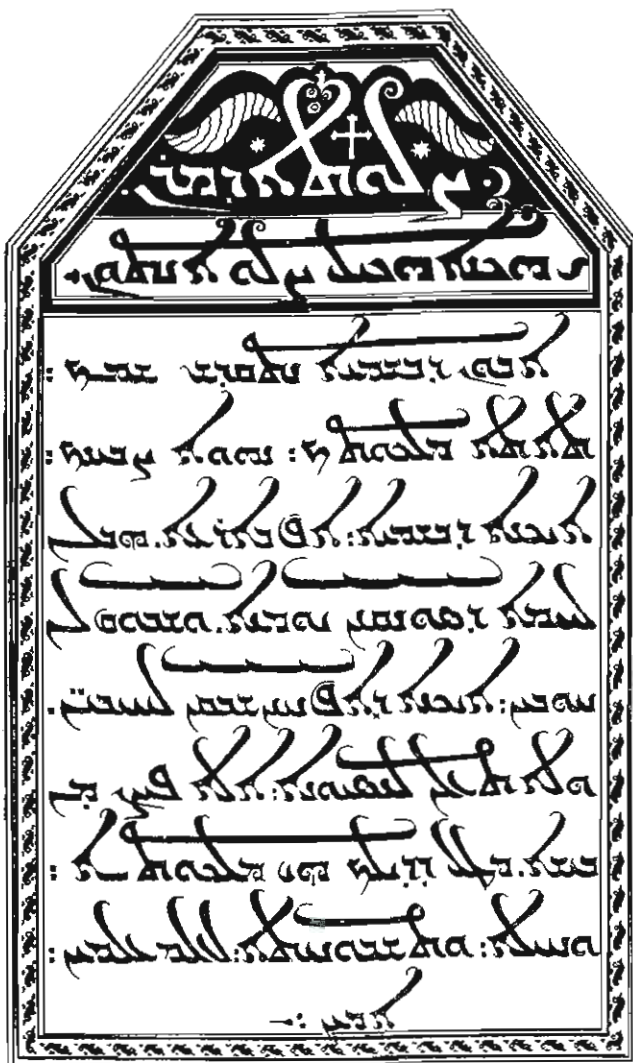 ܨܠܘܬܐ ܕܡܪܢ
ܗܟܢܐ ܗܟܝܠ ܨܠܘ ܐܢܬܘܢ
ܐܒܘܢ ܕܒܫܡܝܐ ܢܬܩܕܫ ܫܡܟ:
ܬܐܬܐ ܡܠܟܘܬܟ: ܢܗܘܐ ܨܒܝܢܟ:
ܐܝܟܢܐ ܕܒܫܡܝܐ: ܐܦ ܒܐܪܥܐ. ܗܒ ܠܢ
ܠܚܡܐ ܕܣܘܢܩܢܢ ܝܘܡܢܐ. ܘܫܒܘܩ ܠܢ
ܚܘܒܝܢ: ܐܝܟܢܐ ܕܐܦ ܚܢܢ ܫܒܩܢ ܠܚܝܒ̈ܝܢ.
ܘܠܐ ܬܥܠܢ ܠܢܣܝܘܢܐ: ܐܠܐ ܦܨܢ ܡܢ
ܒܝܫܐ. ܡܛܠ ܕܕܝܠܟ ܗܝ ܡܠܟܘܬܐ:
ܘܚܝܠܐ: ܘܬܫܒܘܚܬܐ: ܠܥܠܡ ܥܠܡܝܢ:
ܐܡܝܢ܀